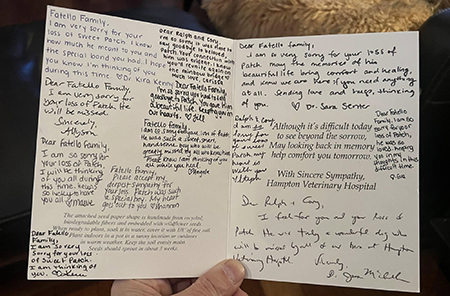 Fatello Family,
I am very sorry for your
loss of sweet Patch. I know
how much he meant to you and
the special bond you had. I hope
you know I'm thinking of you
during this time ♡ Dr. Kira
Dear Ralph and Cory,
I'm so sorry it was time to
say goodbye to beloved
Patch. Your connection with
him was evident. I know
you'll meet again on
the rainbow bridge
much love,
Dear Fatello Family,
I am very sorry for
your loss of Patch. He
will be missed.
Sincerely,
Allyson
Dear Fatello Family,
I'm so sorry you had to say
goodbye to Patch. You gave him
a beautiful life. Keeping you
in our hearts. ♡ Jill
Dear Fatello family,
I am so sorry for your loss of Patch.
He was such a sweet boy
handsome guy who will be
greatly missed by all who knew him.
Please know I am thinking of you
all while you heal.
♡ Angela
Dear Fatello Family,
I am so sorry for
your loss of Patch.
I will be thinking
of you all during
this time. He was
so lucky to have
you all ♡ Maeve
Fatello Family,
Please accept my
deepest sympathy for
your loss. Patch was such
a special boy. My heart
goes out to you ♡
The attached seed paper shape is handmade from recycled,
biodegradable fibers and embedded with wildflower seeds.
When ready to plant, soak it in water, cover it with 1/8" of fine soil.
Plant indoors in a pot in a sunny location or outdoors
in warm weather. Keep the soil evenly moist.
Seeds should sprout in 3 weeks.
Dear Fatello
Family,
I am so sorry
for your loss
of sweet Patch.
I am thinking of
you.
Dear Fatello family,
I am so very sorry for your loss of
Patch. May the memories of his
beautiful life bring comfort and healing,
and know we are here if you need anything
at all. Sending love and keep thinking
of you. ♡ Dr. Sara
Ralph & Cory,
I am so
sorry for
loss
of sweet
Patch.
my heart
is with
you
Steph
"Although it's difficult today
to see beyond the sorrow,
May looking back in memory
help comfort you tomorrow."
With Sincere Sympathy,
Hampton Veterinary Hospital
Dear Fatello
Family,
I am so
sorry for
your loss
of Patch.
He was so
loved.
you in my
thoughts in this
difficult time.
Dr. Ralph & Cory,
I feel for you and your loss of
Patch. He was truly a wonderful dog who
will be missed by all of us here at Hampton
Veterinary Hospital.
Sincerely,